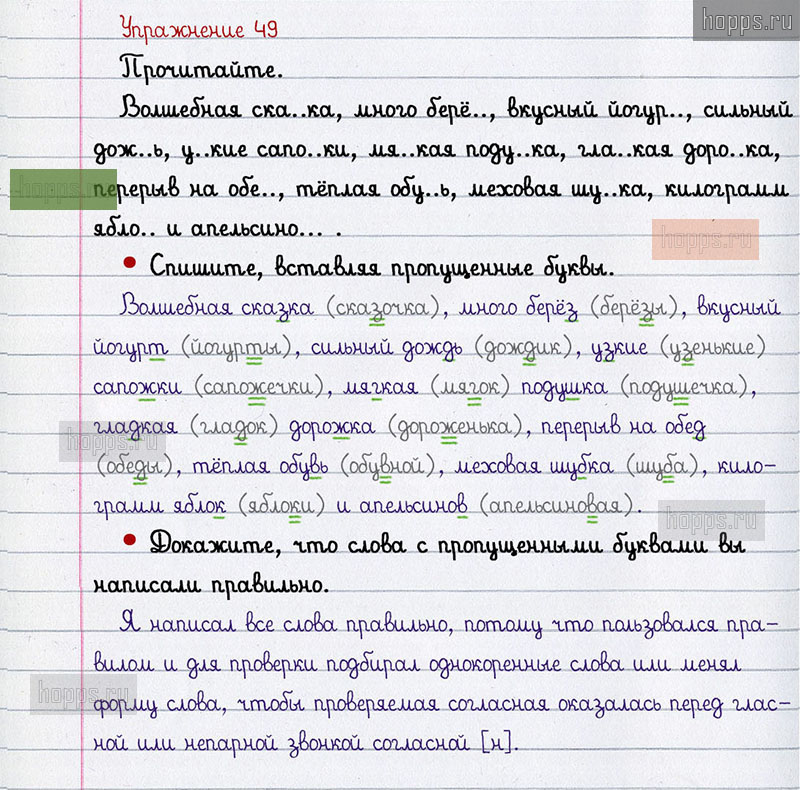 hopps.ru
Упражнение 49
Прочитайте.
Волшебная ска..ка, много берё.., вкусный йогур.., сильный
дож..ь, у..кие сапо..ки, мя..кая поду..ка, гла..кая доро..ка,
hopps.ru
перерыв на обе.., тёплая обу..ь, меховая шу..ка, килограмм
ябло.. и апельсино... .
hopps.ru
Спишите, вставляя пропущенные буквы.
Волшебная сказка (сказочка), много берёз (берёзы), вкусный
йогурт (йогурты), сильный дождь (дождик), узкие (узенькие)
сапожки (сапожечки), мягкая (мягок) подушка (подушечка),
гладкая (гладок) дорожка (дороженька), перерыв на обед
hopps.ru
(обеды), тёплая обувь (обувной), меховая шубка (шуба), кило-
грамм яблок (яблоки) и апельсинов (апельсиновая).
hopps.ru
Докажите, что слова с пропущенными буквами вы
написали правильно.
Я написал все слова правильно, потому что пользовался пра-
вилом и для проверки подбирал однокоренные слова или менял
hopps.ru
форму слова, чтобы проверяемая согласная оказалась перед глас-
ной или непарной звонкой согласной [н].